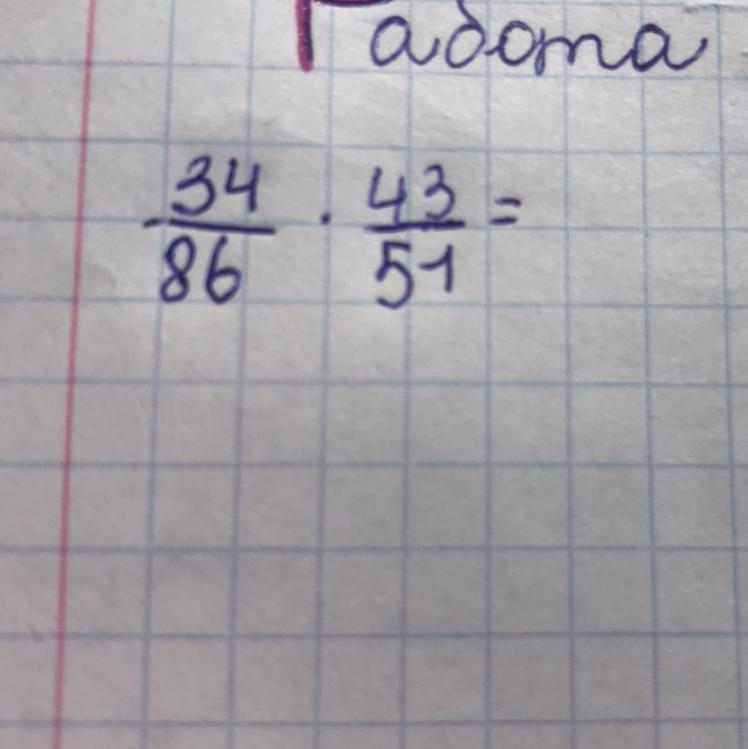 Работа
34/86 · 43/51 =